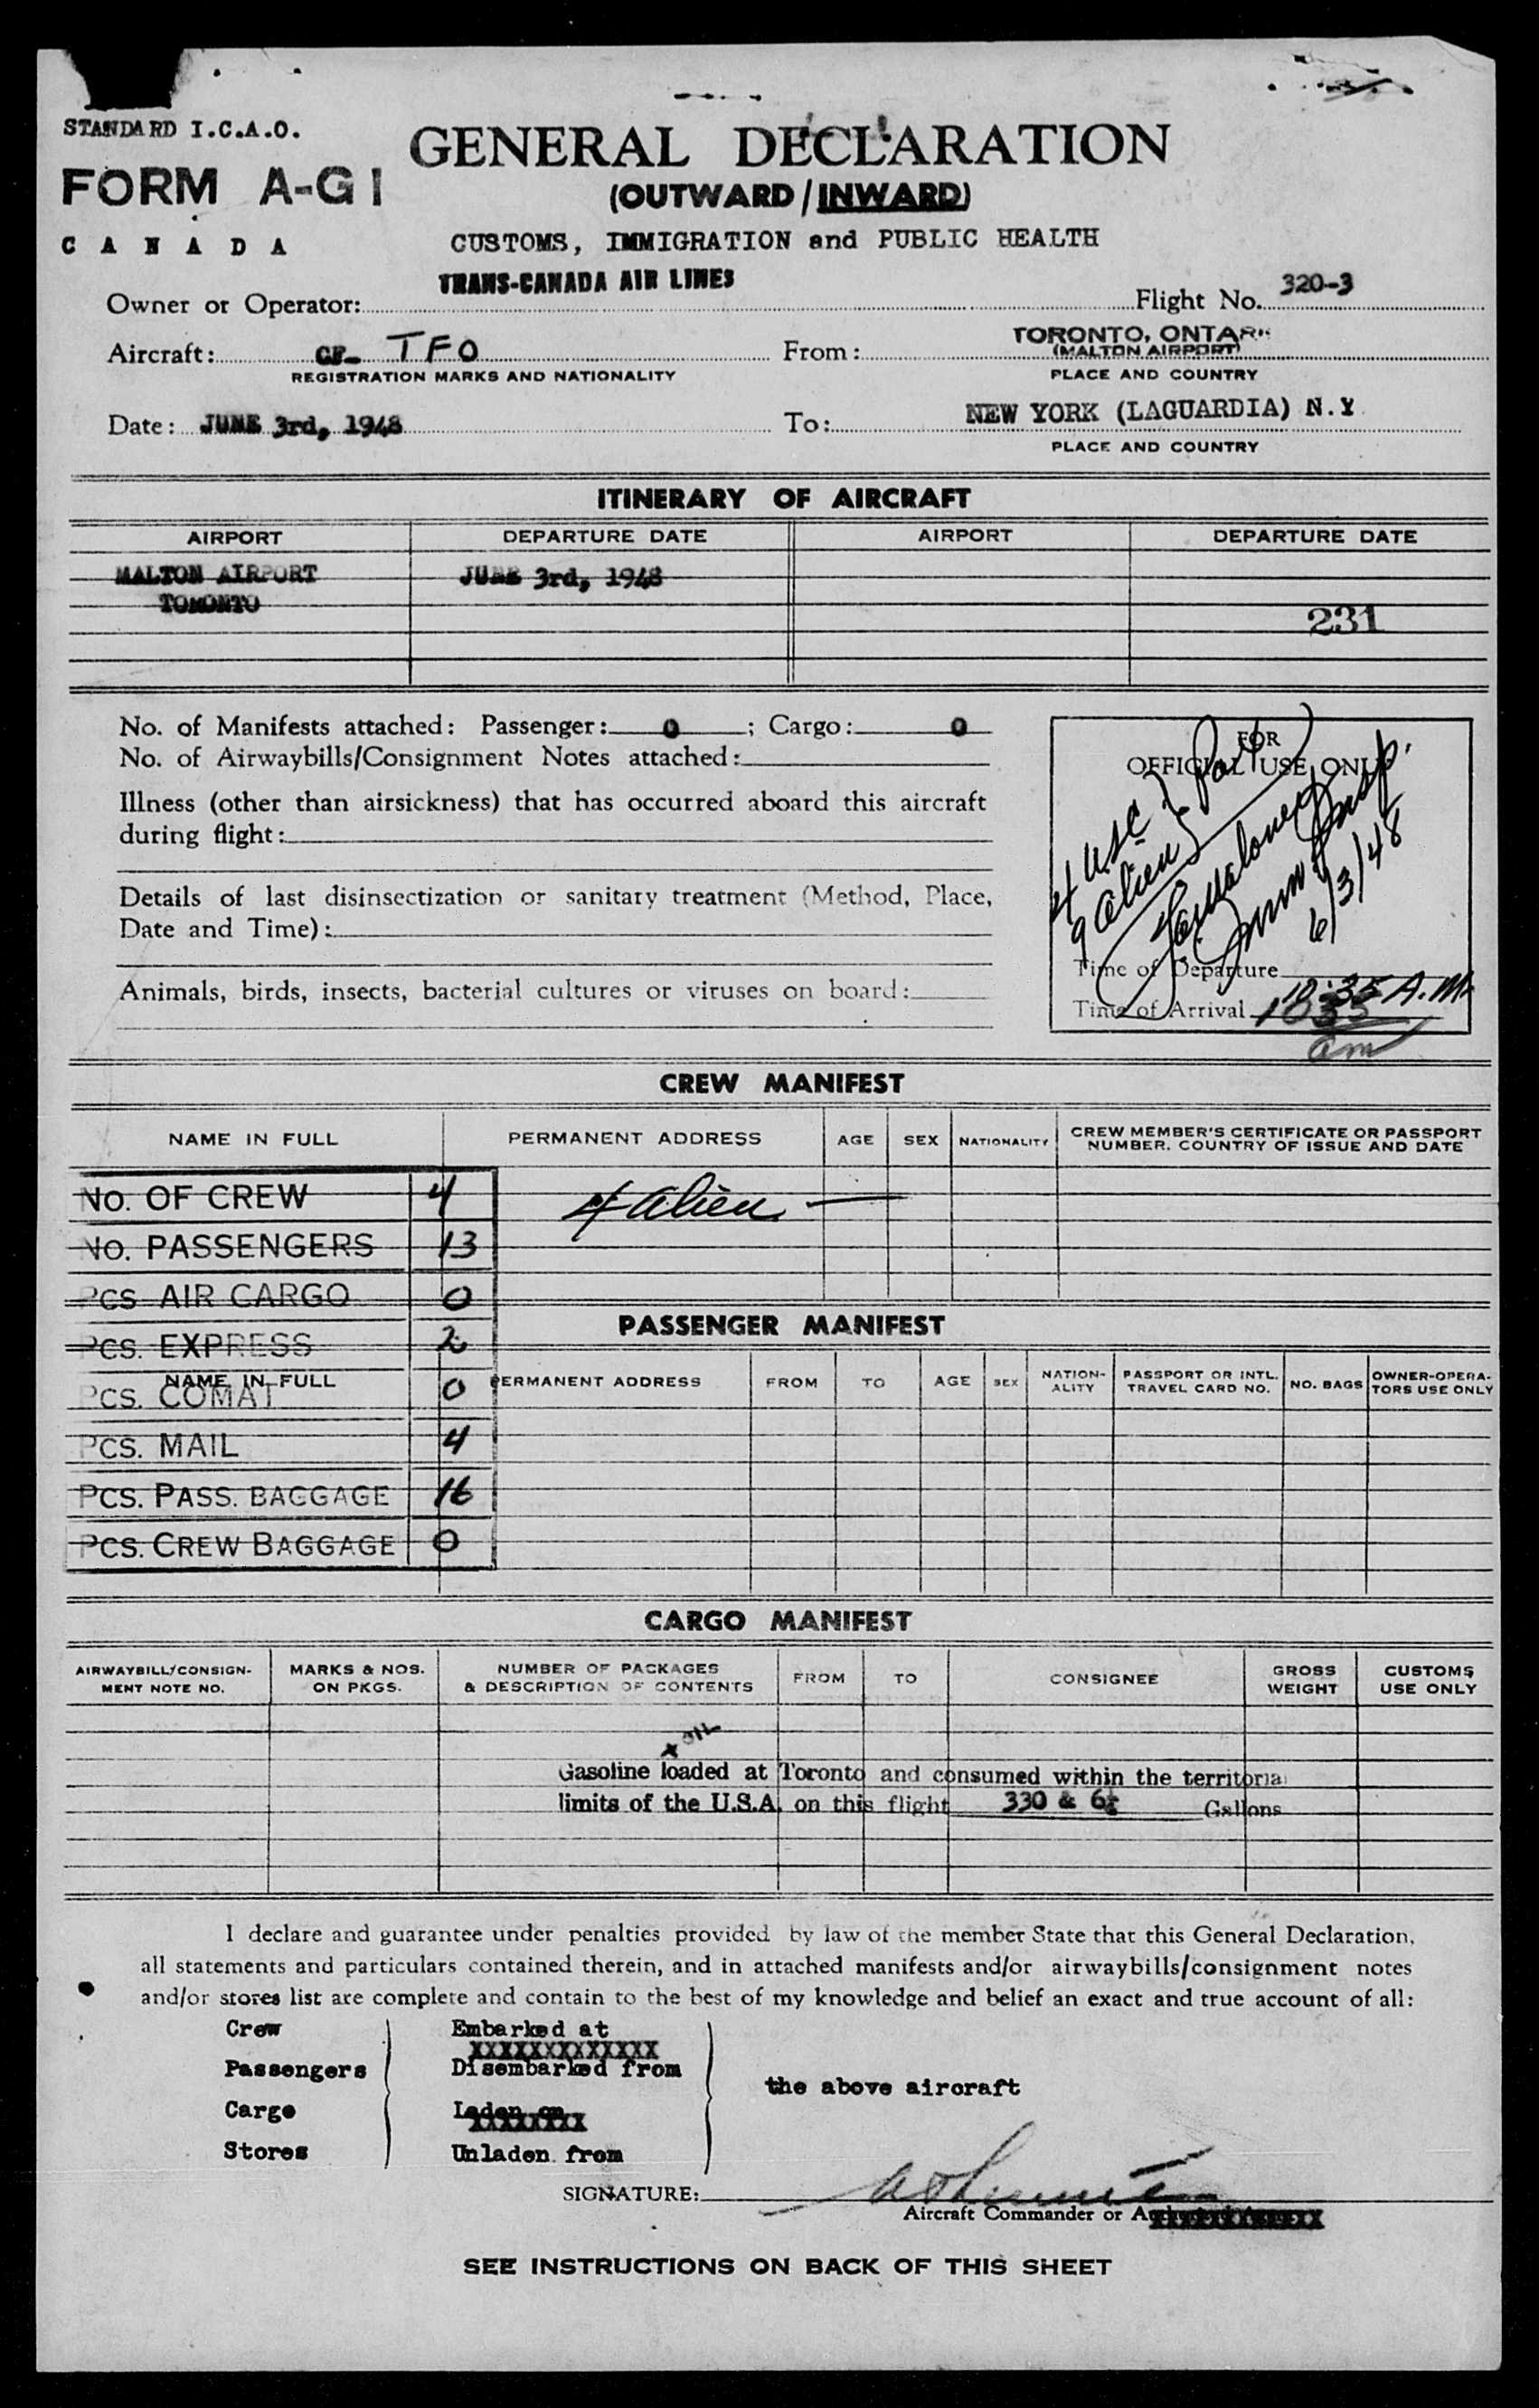 STANDARD I.C.A.O.
FORM A-G1
CANADA
GENERAL DECLARATION
(OUTWARD/INWARD)
CUSTOMS, IMMIGRATION and PUBLIC HEALTH
Owner or Operator: TRANS-CANADA AIR LINES Flight No. 320-3
Aircraft: CF- TFO From: TORONTO, ONTARI
(MALTON AIRPORT)
REGISTRATION MARKS AND NATIONALITY PLACE AND COUNTRY
Date: JUNE 3rd, 1948 To: NEW YORK (LAGUARDIA) N.Y.
PLACE AND COUNTRY
ITINERARY OF AIRCRAFT
AIRPORT DEPARTURE DATE AIRPORT DEPARTURE DATE
MALTON AIRPORT JUNE 3rd, 1948
TORONTO
231
No. of Manifests attached: Passenger: 0 ; Cargo: 0
No. of Airwaybills/Consignment Notes attached:
Illness (other than airsickness) that has occurred aboard this aircraft
during flight:
Details of last disinsectization or sanitary treatment (Method, Place,
Date and Time):
Animals, birds, insects, bacterial cultures or viruses on board:
FOR
OFFICIAL USE ONLY
4 USC
9 alien
Immn Insp.
6/3/48
Time of Departure
10:35 A.M.
Time of Arrival 1035
am
CREW MANIFEST
NAME IN FULL PERMANENT ADDRESS AGE SEX NATIONALITY CREW MEMBER'S CERTIFICATE OR PASSPORT
NUMBER. COUNTRY OF ISSUE AND DATE
No. OF CREW 4 4 alien
No. PASSENGERS 13
PCS AIR CARGO 0
PASSENGER MANIFEST
PCS. EXPRESS 2
NAME IN FULL PERMANENT ADDRESS FROM TO AGE SEX NATION-
ALITY PASSPORT OR INTL.
TRAVEL CARD NO. NO. BAGS OWNER-OPERA-
TORS USE ONLY
PCS. COMAT 0
PCS. MAIL 4
PCS. PASS. BAGGAGE 16
PCS. CREW BAGGAGE 0
CARGO MANIFEST
AIRWAYBILL/CONSIGN-
MENT NOTE NO. MARKS & NOS.
ON PKGS. NUMBER OF PACKAGES
& DESCRIPTION OF CONTENTS FROM TO CONSIGNEE GROSS
WEIGHT CUSTOMS
USE ONLY
Oil
Gasoline loaded at Toronto and consumed within the territorial
limits of the U.S.A. on this flight 330 & 6½ Gallons
I declare and guarantee under penalties provided by law of the member State that this General Declaration,
all statements and particulars contained therein, and in attached manifests and/or airwaybills/consignment notes
and/or stores list are complete and contain to the best of my knowledge and belief an exact and true account of all:
Crew Embarked at
XXXXXXXXXXXXX
Passengers Disembarked from
the above aircraft
Cargo Laden on
XXXXXXXX
Stores Unladen from
SIGNATURE:
Aircraft Commander or
SEE INSTRUCTIONS ON BACK OF THIS SHEET